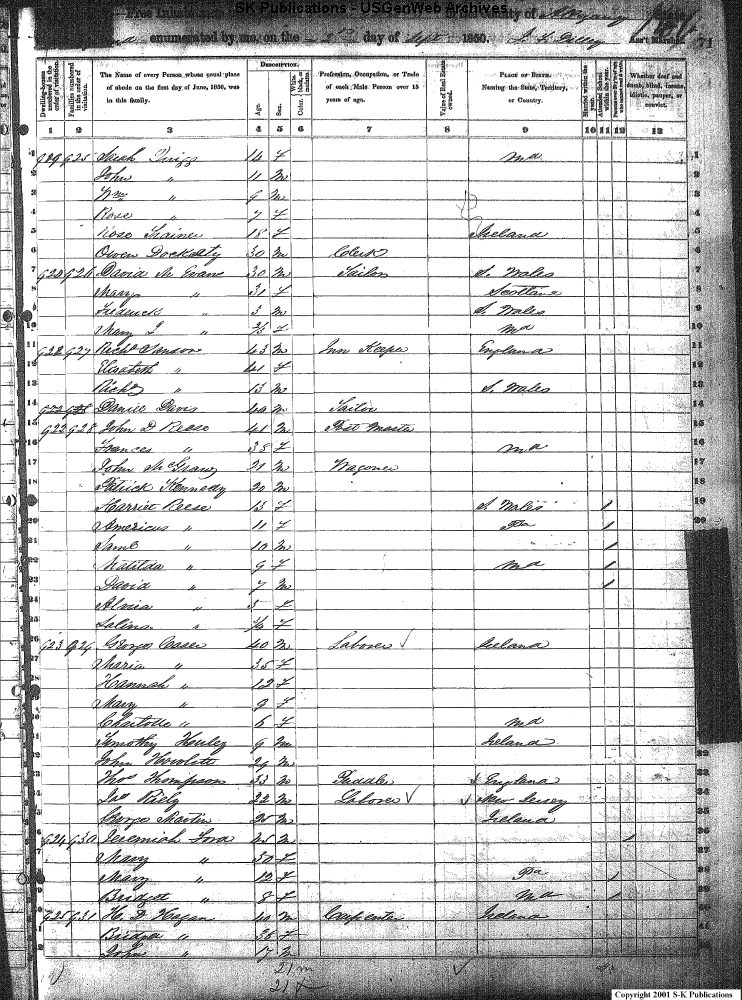 SK Publications - USGenWeb Archives
Free Inhabitants in County of Allegany
enumerated by me, on the 2nd day of Sept 1850. Ass't Marshal 71
Dwelling-houses numbered in the order of visitation.
Families numbered in the order of visitation.
The Name of every Person whose usual place of abode on the first day of June, 1850, was in this family.
Description.
Age.
Sex.
Color. White, black, or mulatto.
Profession, Occupation, or Trade of each Male Person over 15 years of age.
Value of Real Estate owned.
Place of Birth. Naming the State, Territory, or Country.
Married within the year.
Attended School within the year.
Whether deaf and dumb, blind, insane, idiotic, pauper, or convict.
1 2 3 4 5 6 7 8 9 10 11 12 13
1 925 Sarah 14 F Md
2 John " 11 M
3 Wm " 9 M
4 Rose " 7 F
5 Rose Trainer 18 F Ireland
6 Owen 30 M Clerk
7 926 David M Evans 30 M Tailor S. Wales
8 Mary " 31 F Scotland
9 Frederick " 3 M S. Wales
10 Mary J " F Md
11 927 Richd 43 M Inn Keeper England
12 Elizabeth " 41 F
13 Richd " 13 M S. Wales
14 Daniel Davis M Tailor
15 928 John D Reese 41 M Post Master
16 Frances " 38 F Md
17 John McGraw 21 M Wagoner
18 Patrick Kennedy 20 M
19 Harriet Reese 13 F S. Wales
20 Americus " 11 F Pa
Saml " 10 M
Matilda " 9 F Md
David " 7 M
Almia " 5 F
Salina " F
923 929 George 40 M Laborer Ireland
Maria " 35 F
Hannah " 12 F
Mary " 9 F
Charlotte " 6 F Md
Timothy 9 M Ireland
John 29 M
Thos Thompson 33 M Puddler England
Jas Riely 22 M Laborer New Jersey
George Martin 25 M Ireland
924 930 Jeremiah Ford 45 M
Mary " 30 F
Mary " 12 F Pa
Bridgett " 8 F Md
925 931 H. D Hagan 40 M Carpenter Ireland
Bridget " 38 F
John " 17 M
21 m
21 f
Copyright 2001 S-K Publications